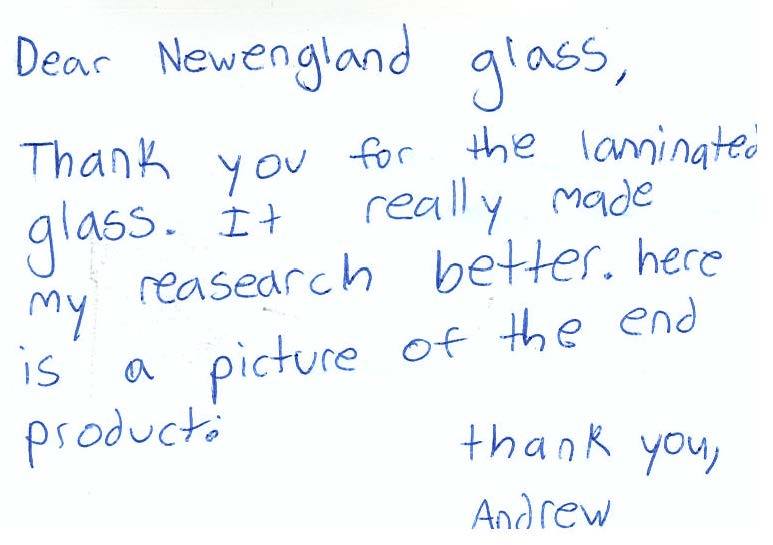 Dear Newengland glass,
Thank you for the laminated
glass. It really made
my reasearch better. here
is a picture of the end
product:
thank you,
Andrew